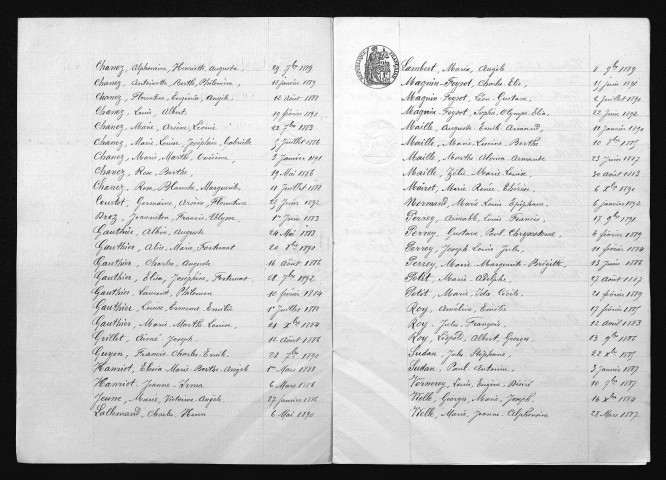 Chanez, Alphonsine, Henriette, Augusta, 29 7bre 1889
Chanez, Antoinette, Berthe, Philomène, 15 janvier 1889
Chanez, Florentine, Eugénie, Angèle, 12 août 1888
Chanez, Louis, Albert, 19 février 1890
Chanez, Marie, Arsène, Léonie 22 7bre 1883
Chanez, Marie Louise, Joséphine, Gabrielle 5 juillet 1886
Chanez, Marie Marthe, Onésime, 3 janvier 1891
Chanez, Rose, Berthe, 19 Mai 1886
Chanez, Rose, Blanche, Marguerite, 11 juillet 1888
Germaine, Arsène, Florentine 25 juin 1892
Droz, Francis, Ulysse 1er juin 1883
Gauthier, Albin, Auguste 24 Mai 1883
Gauthier, Alix, Marie, Fortunat 20 8bre 1890
Gauthier, Charles, Auguste 16 Août 1886
Gauthier, Elisa, Joséphine, Fortunat 28 7bre 1892
Gauthier, Laurent, Philomen 10 février 1884
Gauthier, Louise, Ermence, Emilie 1er juillet 1888
Gauthier, Marie Marthe, Louise, 24 Xbre 1884
Grillet, Aimé, Joseph 12 Août 1886
Guyon, Francis, Charles, Emile. 24 7bre 1890
Hanriot, Elisia, Marie, Berthe, Angèle 1er Mars 1888
Hanriot, Jeanne, Irma 6 Mars 1886
Jeune, Marie, Victoire, Angèle 27 janvier 1886
Lallemand, Charles, Henri 6 Mai 1890
Lambert, Maria, Angèle 8 9bre 1889
Magnin-Feysot, Charles, Elie, juin 1891
Magnin-Feysot, Léon, Gustave, 2 juillet 1890
Magnin-Feysot, Sophie, Olympe, Elia, 22 juin 1892
Maille, Auguste, Emile, Armand, 11 janvier 1890
Maille, Marie, Lucine, Berthe 10 8bre 1885
Maille, Marthe, Albina, Armande 23 juin 1887
Maille, Zélie, Marie, Louise 30 août 1883
Mairot, Marie, Renée, Thérèse, 6 8bre 1890
Normand, Marie, Louis, Epiphane, 6 janvier 1892
Perrey, Aimable, Louis, Francis, 17 9bre 1891
Perrey, Gustave, Paul, Chrysostome 4 février 1889
Perrey, Joseph, Louis, Jules, 11 février 1884
Perrey, Marie, Marguerite, Brigitte, 13 juin 1886
Petit, Marie, Adelphe, 27 Août 1887
Petit, Marie, Ida, Cécile, 21 février 1889
Roy, Emilie 17 février 1885
Roy, Jules, François, 12 août 1883
Roy, Léopold, Albert, Georges, 13 9bre 1886
Sudan, Jules, Stéphane, 22 Xbre 1885
Sudan, Paul, Antonin, 3 janvier 1887
Vernerey, Louis, Eugène, Désiré 10 7bre 1887
Vielle, Georges, Marie, Joseph, 14 Xbre 1884
Vielle, Marie, Jeanne, Alphonsine 28 Mars 1887